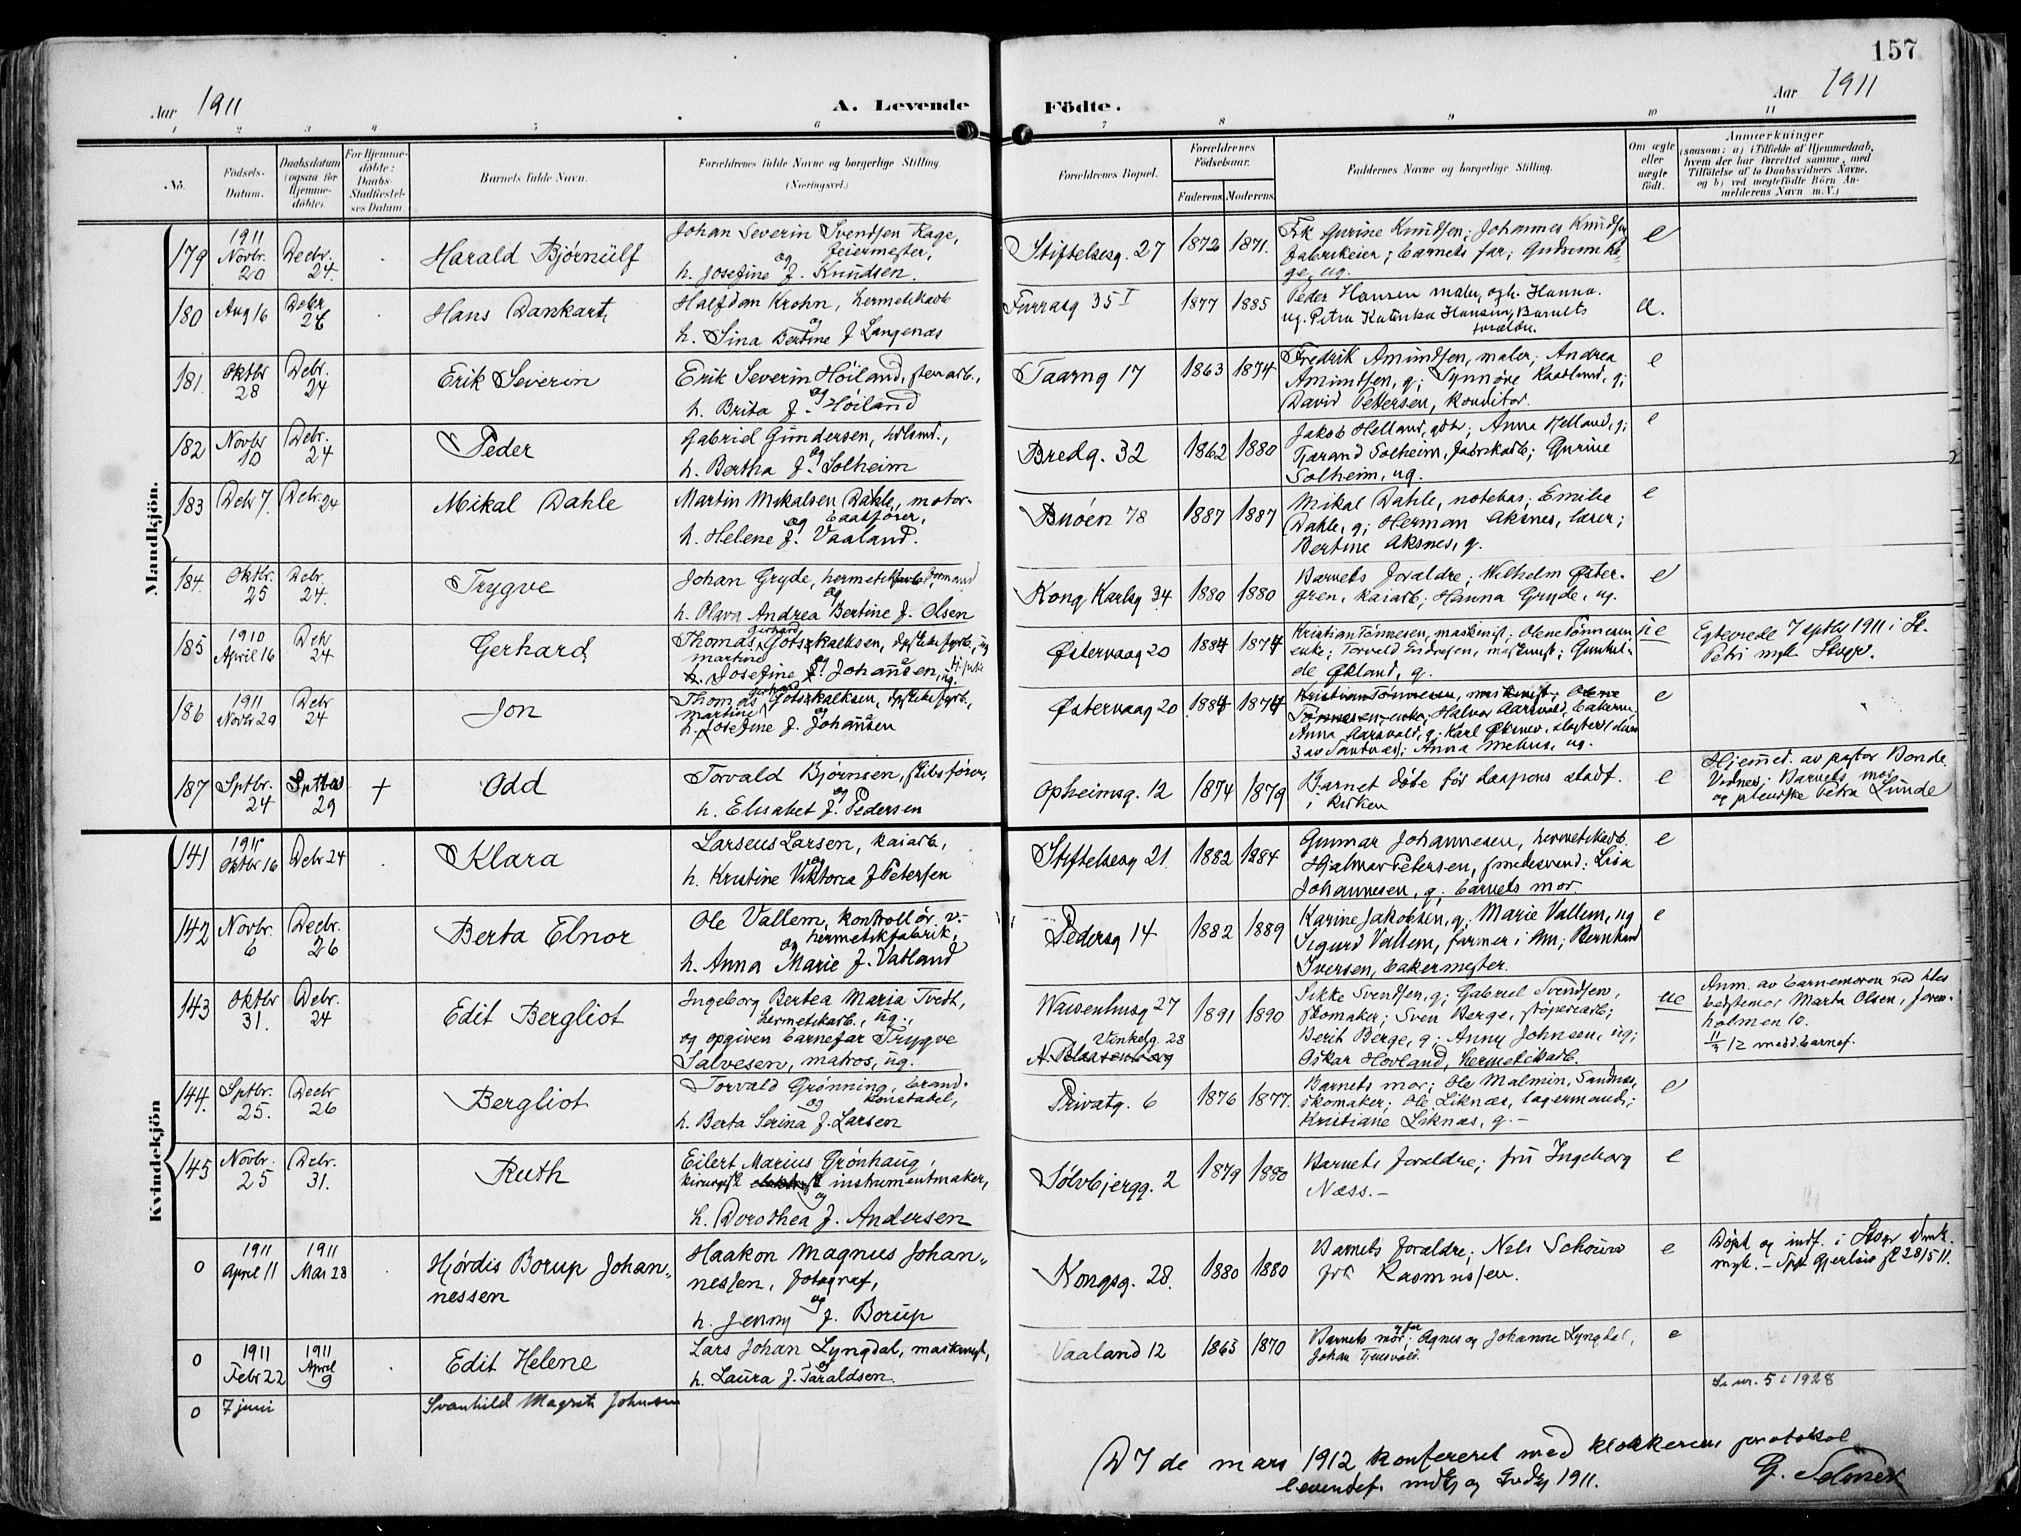 157
Aar 1911
A. Levende
Födte.
Aar 1911
1 2 3 4 5 6 7 8 9 10 11
No.
Fødsels-Datum.
Daabsdatum (ogsaa for Hjemme-döbte).
For Hjemme-döbte: Daabs-Stadfæstel-ses Datum.
Barnets fulde Navn.
Forældrenes fulde Navne og borgerlige Stilling. (Næringsvei.)
Forældrenes Bopæl.
Forældrenes Födselsaar.
Faderens. Moderens.
Faddernes Navne og borgerlige Stilling.
Om ægte eller uægte födt.
Anmærkninger
(saasom: a) i Tilfælde af Hjemmedaab, hvem der har forrettet samme, med Tilföielse af to Daabsvidners Navne, og b) ved uægtefödte Börn An-melderens Navn m. V.)
Mandkjön.
179 1911 Novbr. 20 Decbr. 24. Harald Bjørnulf
Johan Severin Svendsen Kage,
feiermester,
og
h. Josefine f. Knudsen.
Stiftelsesg. 27 1872 1871.
Frk Gurine Knudsen; Johannes Knudsen
fabrikeier; barnets far; Gudrun Ka-
ge, ug.
e
180 Aug 16 Debr 26 Hans Dankart
Halfdan Krohn, hermetikarb
og
h. Sina Bertine f Langenæs
Furrasg 35 I 1877 1885
Peder Hansen maler, og h. Hanna.
ug. Petra Katinka Hansen, Barnets
forældre.
e.
181. Oktbr 28 Debr. 24 Erik Severin
Erik Severin Höiland, stenarb.,
og
h. Brita f. Höiland
Taarng 17 1863 1874
Fredrik Amundsen, maler; Andrea
Amundsen, g; Synnöve Kaadland, g;
David Pettersen, konditor.
e
182 Novbr 10 Debr. 24 Peder
Gabriel Gundersen, hdlsmd.,
og
h. Bertha f. Solheim
Bredg. 32 1862 1880
Jakob Helland, gdbr; Anna Helland, g;
Tjærand Solheim, fabrikarb; Gurine
Solheim, ug.
e
183 Debr 7. Debr. 24 Mikal Dahle
Martin Mikalsen Dahle, motor-
baatfører,
og
h. Helene f. Vaaland.
Buöen 78 1887 1887
Mikal Dahle, notebas; Emilie
Dahle, g; Herman Aksnes, lærer;
Bertine Aksnes, g.
e
184. Oktbr. 25 Debr. 24. Trygve
Johan Gryde, hermetikfarb. formand
og
h. Olava Andrea Bertine f. Olsen
Kong Karlsg 34. 1880 1880
Barnets forældre; Wilhelm Øster-
gren, kaiarb; Hanna Gryde, ug.
e
185 1910 April 16 Debr 24 Gerhard
Thomas Gerhard Gotskalksen,
martine
h. Josefine f. Johannes
Østervaag 20 1884 1874
Kristian Tønnesen, maskinist; Olene Tønnesen,
enke; Torvald Endresen, maskinist; Gunhil-
de Økland, g.
ue
Egteviede 7 sptbr 1911 i St.
Petri mgh Stvgr.
186 1911 Novbr 29 Debr 24 Jon
Thomas Gerhard Gotskalksen,
martine og
h. Josefine f. Johannsen
Østervaag 20 1884 1874
Kristian Tønnesen, maskinist; Olene
Tønnesen, enke; Halvor Aarsvold, bakersv;
Anna Aarsvold, g; Karl
Anna Mehus, ug.
e
187 Sptbr. 24 Sptbr 29 + Odd
Torvald Bjørnsen, skibsfører,
og
h. Elisabet f. Pedersen
Opheimsg. 12 1874 1879
Barnet døde før daapens stadf.
i kirken
e
Hjemmed. av pastor Bonde.
Vidner; Barnets mor
og pleierske Petra Lunde
Kvindekjön
141 1911 Oktbr 16 Debr 24 Klara
Larseus Larsen, kaiarb,
og
h. Kristine Viktoria f Petersen
Stiftelsesg 21. 1882 1884
Gunnar Johannesen, hermetikarb.
Hjalmar Petersen, smedesvend: Lisa
Johannesen, g; barnets mor
e
142 Novbr. 6 Decbr. 26 Berta Elnor
Ole Vallem, kontrollør v.
hermetikfabrik,
og
h. Anna Marie f. Vatland
Pedersg 14 1882 1889
Karine Jakobsen, g; Marie Vallem, ug
Sigurd Vallem, farmer i Am; Bernhard
Iversen, bakermester.
e
143 Oktbr 31. Debr. 24 Edit Bergliot
Ingeborg Bertea Maria Tvedt,
hermetikarb., ug.,
og opgiven barnefar Trygve
Salvesen, matros, ug.
Waisenhusg 27
Vinkelg. 28
N. Blaasenborg
1891 1890
Sikke Svendsen, g; Gabriel Svendsen,
skomaker; Sven Berge, støperiarb;
Berit Berge, g; Anny Johnsen, ug;
Oskar Hovland, hermetikarb.
ue
Anm. av barnemoren ved hdes
bedstemor Marta Olsen, Joren-
holmen 10.
11/3 12 medd. barnef.
144. Sptbr. 25. Decbr 26 Bergliot
Torvald Grönning, brand-
konstabel,
og
h. Berta Serina f. Larsen
Privatg. 6 1876 1877.
Barnets mor; Ole Malmin, Sandnæs,
skomaker; Ole Liknæs, lagermand;
Kristiane Liknæs, g.-
e
145 Novbr. 25 Debr. 31. Ruth
Eilert Marius Grönhaug,
kirurgisk instrumentmaker,
og
h. Dorothea f. Andersen
Sølvbjergg. 2 1879 1880
Barnets forældre; frü Ingeborg
Næss.-
e
0 1911 April 11 1911 Mai 28 Hjördis Borup Johan-
nessen
Haakon Magnus Johan-
nessen, fotograf,
og
h. Jenny f. Borup
Kongsg. 28. 1880 1880
Barnets forældre; Nels Schouw
frk Rasmussen.
e
Døpt og indf. i Stvgr Domk.
mgh. - Spr. Gjerløw 28/5 11.
0 1911 Febr 22 1911 April 9 Edit Helene
Lars Johan Lyngdal, maskinist,
og
h. Laura f. Taraldsen.
Vaaland 12 1863 1870
Barnets mor; og far Agnes og Johanne Lyngdal,
Johan Tjensvold.
e
0 7 juni Svanhild Magret Johnsen
Se nr. 5 i 1928
D 7 de mars 1912 konfereret med klokkerens protokol
levendef. mdkj og kvdkj 1911.
G. Selmer